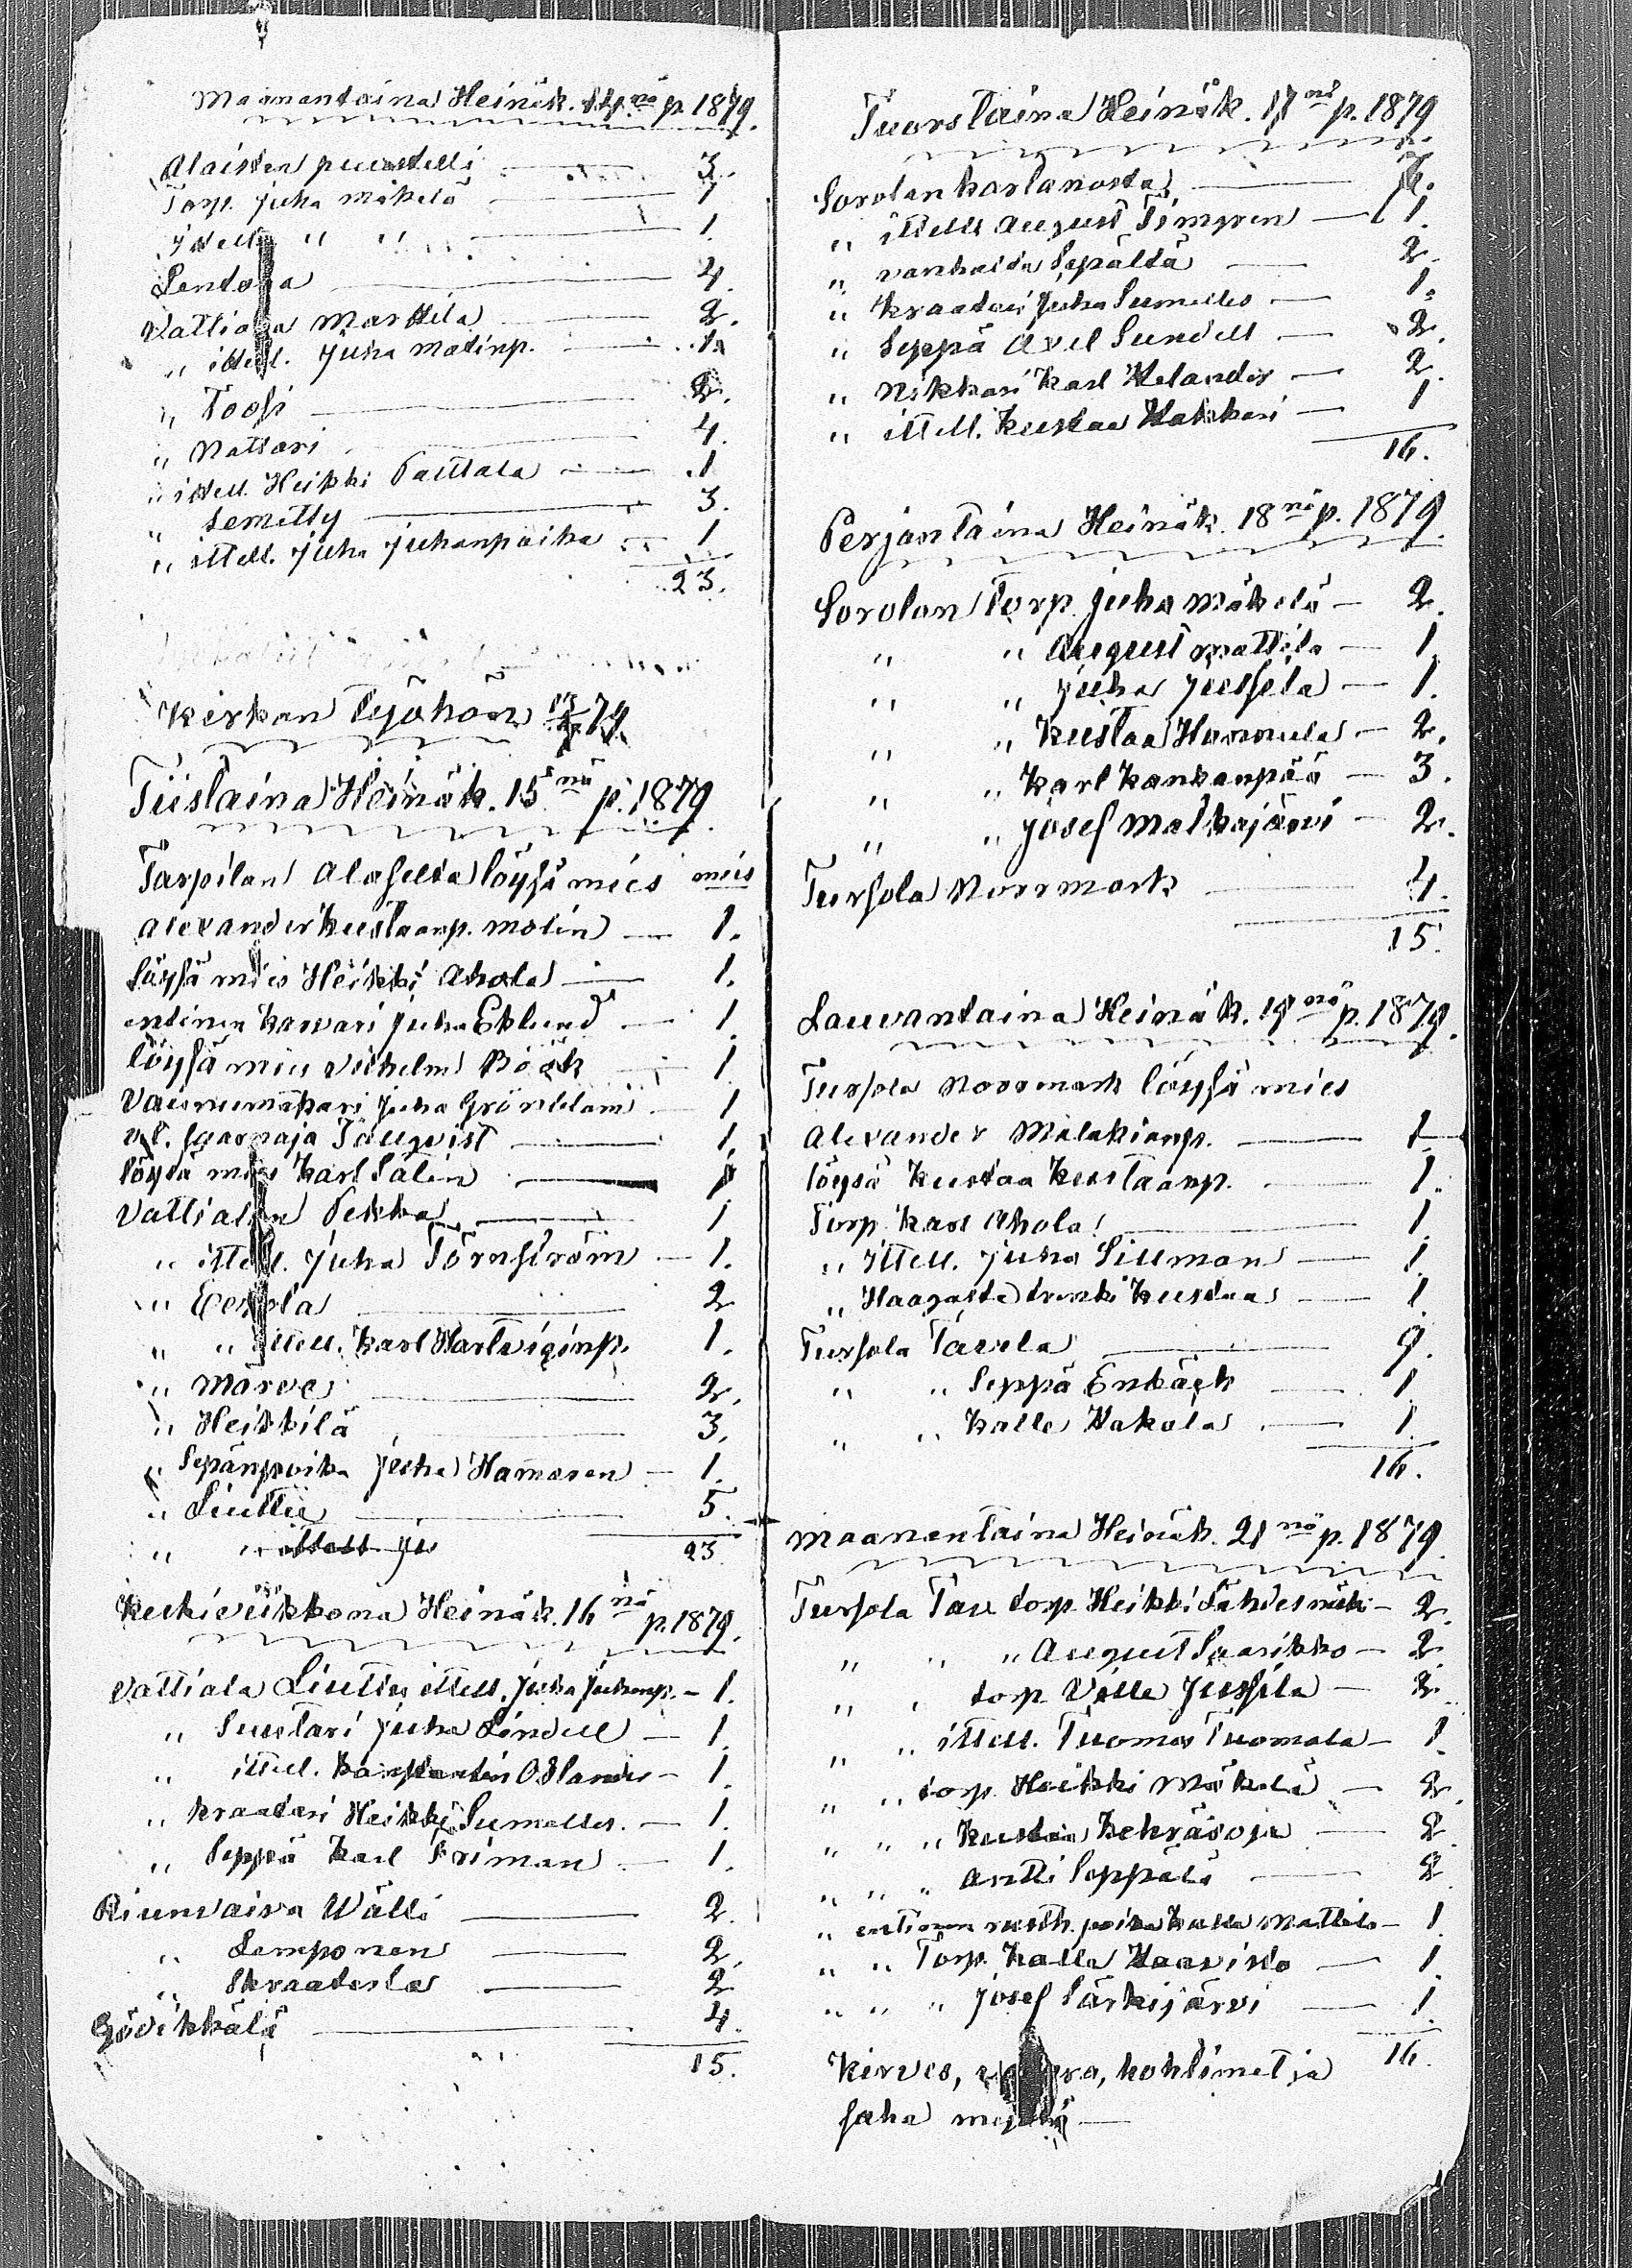 Maanantaina Heinäk. 14 nä p. 1879.
Alaisten puustelli 3.
Torp. Juha Mäkelä 1
Ittell. " " 1.
Lentola 4.
Vattiala Marttila 2.
" ittell. Juha Matinp. 1.
" Toosi 2.
" Nattari 4.
" ittell. Heikki Paittala 1
" Lemetty 3.
" ittell. Juha Juhanpoika 1
23.
Kirkon Työhön 79
Tiistaina Heinäk. 15 nä p. 1879.
Tarpilan Alaselta löysä mies mies
Alexander Kustaanp. Molin 1.
löysä mies Heikki Ahola 1.
entinen karvari Juha Eklund 1
löysä mies Vilhelm Böök 1
Vaunumakari Juha Grönblom 1
v.t. saarnaja Tauqvist 1.
löysä mies Karl Salin 1
Vattialan Pekka 1
" ittell. Juha Törnström 1.
" Eerola 2
" " ittell. Karl Hartviginp. 1.
" Marve 2.
" Heikkilä 3.
" Sepänpoika Juha Hamaren 1.
" Liuttu 5.
" " ittell. Ju 23
Keskiviikkona Heinäk. 16 nä p. 1879.
Vattiala Liuttu ittell. Juha Juhanp. 1.
" Suutari Juha Lindell 1.
" ittell. Konstantin Oslander 1.
" kraatari Heikki Sumelles. 1.
" Seppä Karl Friman 1.
Riunvaiva Wälli 2.
" Lemponen 2.
" Skraatarla 2
Hövikkälä 4.
15.
Tuorstaina Heinäk. 17 nä p. 1879
Sorolan kartanosta 7.
" ittell. August Timgren 1.
" vanhaita Sepältä 2.
" kraatari Juha Sumelles 1.
" Seppä Axel Sundell 2.
" Nikkari Karl Helander 2.
" ittell. Kustaa Hakkari 1
16.
Perjantaina Heinäk. 18 nä p. 1879.
Sorolan torp. Juha Mäkelä 2.
" " August Mattila 1
" " Juha Jussila 1.
" " Kustaa Hannula 2.
" " Karl Kankanpää 3.
" " Josef Matkajärvi 2.
Tursola Norrmark 4.
15.
Lauvantaina Heinäk. 19 nä p. 1879.
Tursola Norrmark löysä mies
Alexander Malakianp. 1
löysä Kustaa Kustaanp. 1.
Torp. Karl Ahola 1
" Ittell. Juha Sillman 1
" Haagasta trenki Kustaa 1.
Tursola Tavela 9.
" " Seppä Enbäck 1
" " Kalle Hakala 1.
16.
Maanantaina Heinäk. 21 nä p. 1879.
Tursola Tav torp. Heikki Lähdesmäki 2.
" " " August Saarikko 2.
" " torp. Ville Jussila 2.
" " ittell. Tuomas Tuomala 1.
" " torp. Heikki Mäkelä 2.
" " " Kustaa Kehräsoja 2.
" " " Antti Seppälä 2
" entinen rusth. poika Kalle Mattila 1
" " Torp. Kalle Haavisto 1
" " " Josef Särkijärvi 1.
16.
Kirves, vasara, kohtimet ja
saha myötä